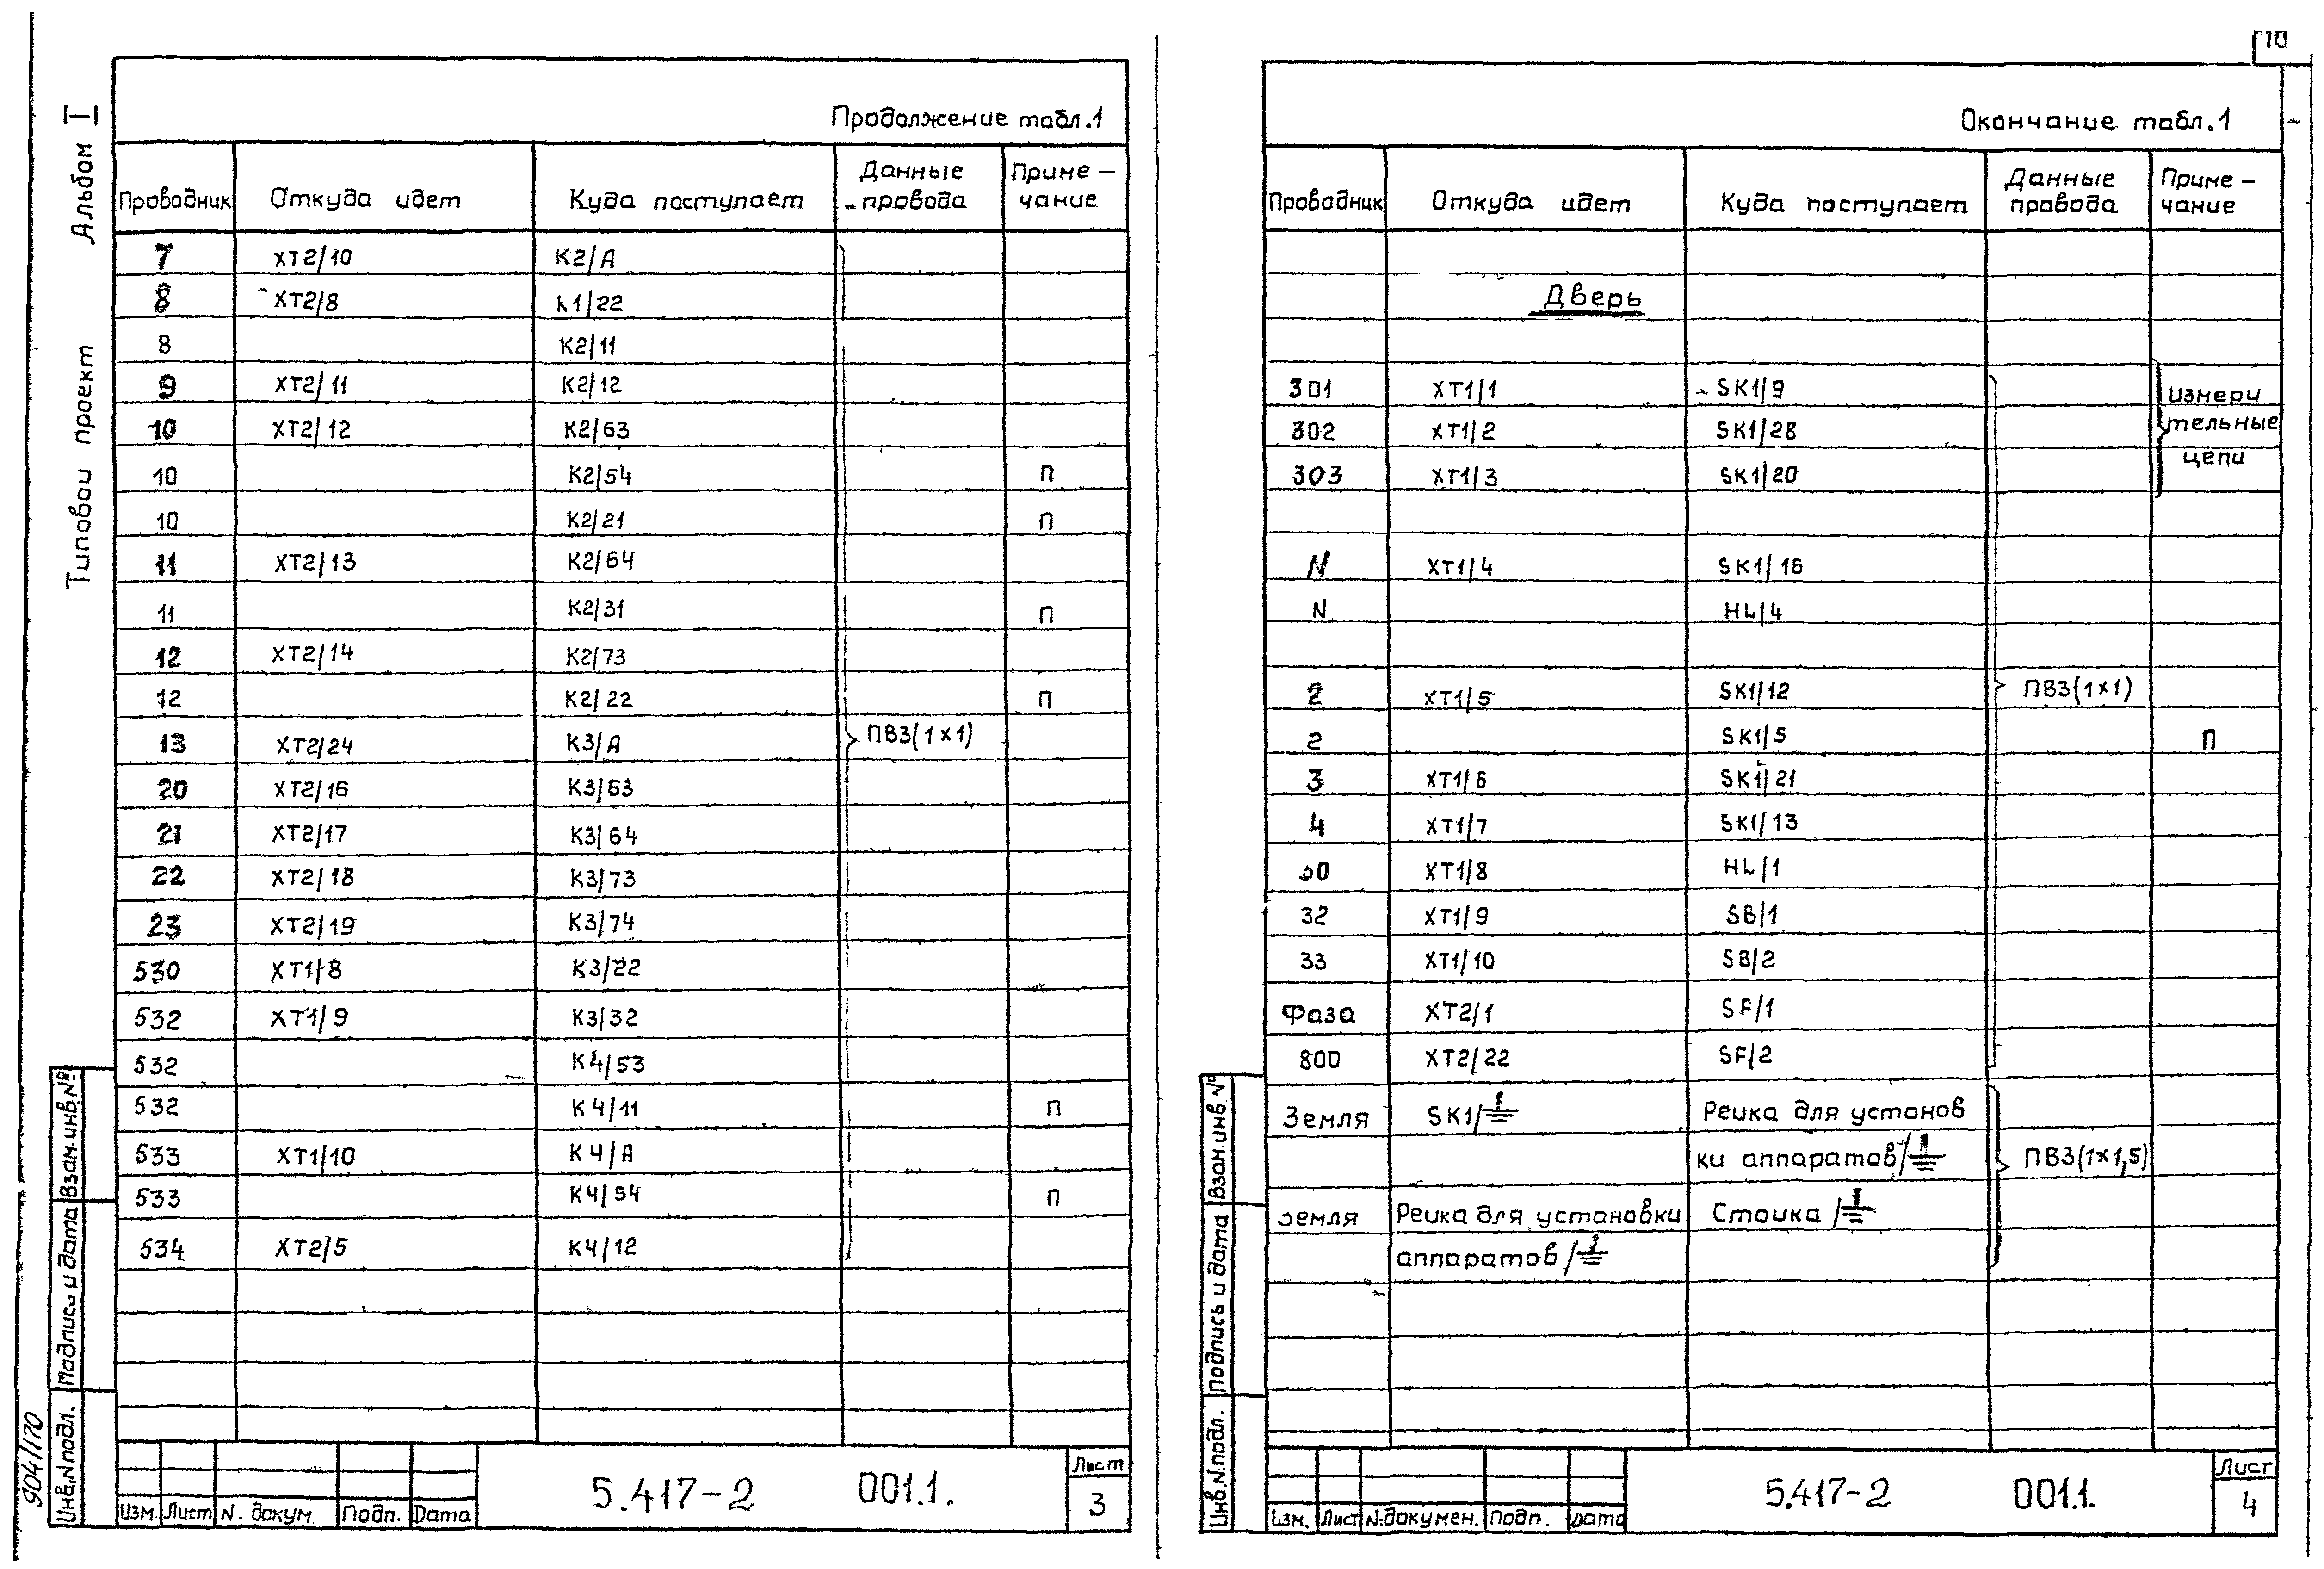 Альбом I
Типовой проект
904/170
Продолжение табл.1
Проводник Откуда идет Куда поступает Данные провода Приме-чание
7 XT2/10 K2/A
8 XT2/8 K1/22
8 K2/11
9 XT2/11 K2/12
10 XT2/12 K2/63
10 K2/54 П
10 K2/21 П
11 XT2/13 K2/64
11 K2/31 П
12 XT2/14 K2/73
12 K2/22 П
13 XT2/24 K3/A ПВ3(1×1)
20 XT2/16 K3/63
21 XT2/17 K3/64
22 XT2/18 K3/73
23 XT2/19 K3/74
530 XT1/8 K3/22
532 XT1/9 K3/32
532 K4/53
532 K4/11 П
533 XT1/10 K4/A
533 K4/54 П
534 XT2/5 K4/12
Инв.N подл. Подпись и дата Взам.инв.№
Изм. Лист N. докум. Подп. Дата
5.417-2 001.1.
Лист
3
10
Окончание табл.1
Проводник Откуда идет Куда поступает Данные провода Приме-чание
Дверь
301 XT1/1 SK1/9 Измери
302 XT1/2 SK1/28 тельные
303 XT1/3 SK1/20 цепи
N XT1/4 SK1/16
N HL/4
2 XT1/5 SK1/12 ПВ3(1×1)
2 SK1/5 П
3 XT1/6 SK1/21
4 XT1/7 SK1/13
30 XT1/8 HL/1
32 XT1/9 SB/1
33 XT1/10 SB/2
Фаза XT2/1 SF/1
800 XT2/22 SF/2
Земля SK1/⏚ Рейка для установ
ки аппаратов/⏚ ПВ3(1×1,5)
Земля Рейка для установки Стойка/⏚
аппаратов/⏚
Инв.N.подл. Подпись и дата Взам.инв.№
Изм. Лист №докумен. Подп. Дата
5.417-2 001.1.
Лист
4